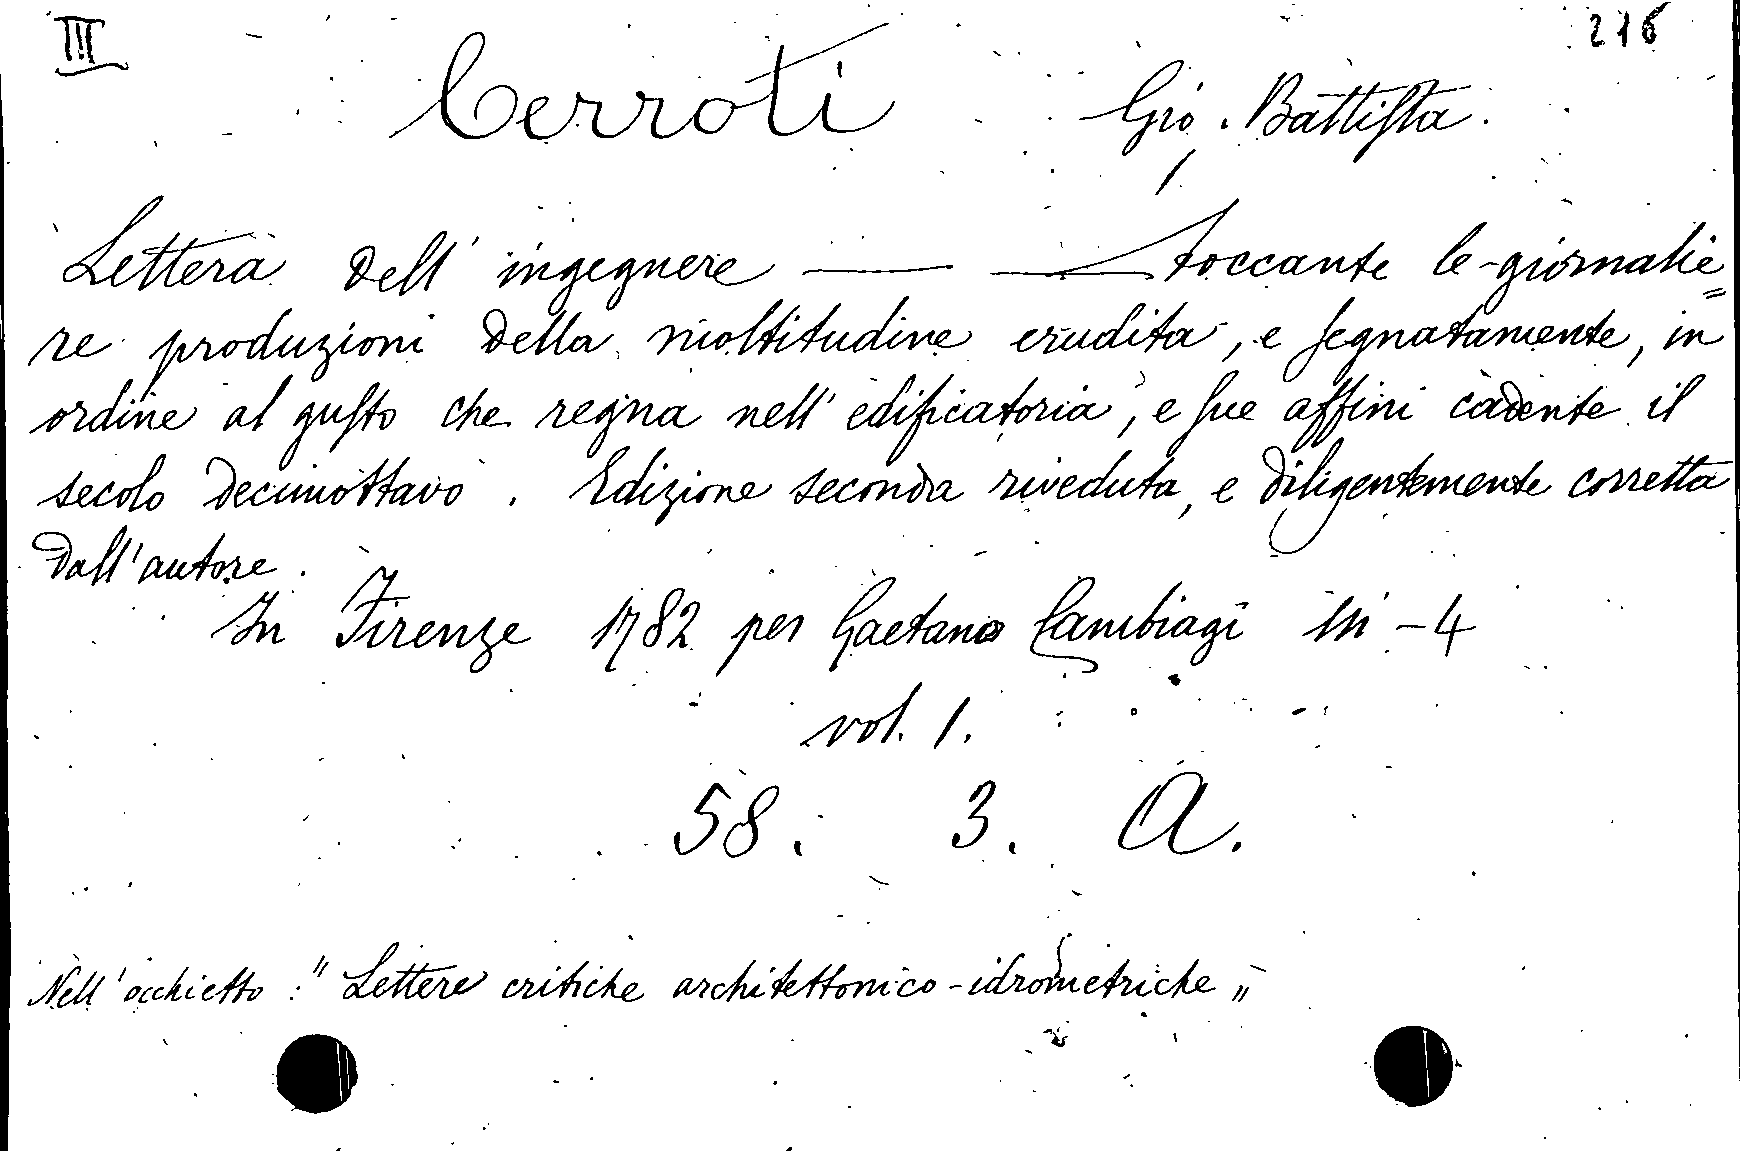 III
216
Cerroti Gio. Battista.
Lettera dell' ingegnere —— —— toccante le giornalie=
re produzioni della moltitudine erudita, e segnatamente, in
ordine al gusto che regna nell' edificatoria, e sue affini cadente il
secolo decimottavo. Edizione seconda riveduta, e diligentemente corretta
dall'autore.
In Firenze 1782 per Gaetano Cambiagi in -4
vol. 1.
58. 3. A.
Nell'occhietto: "Lettere critiche architettonico-idrometriche"